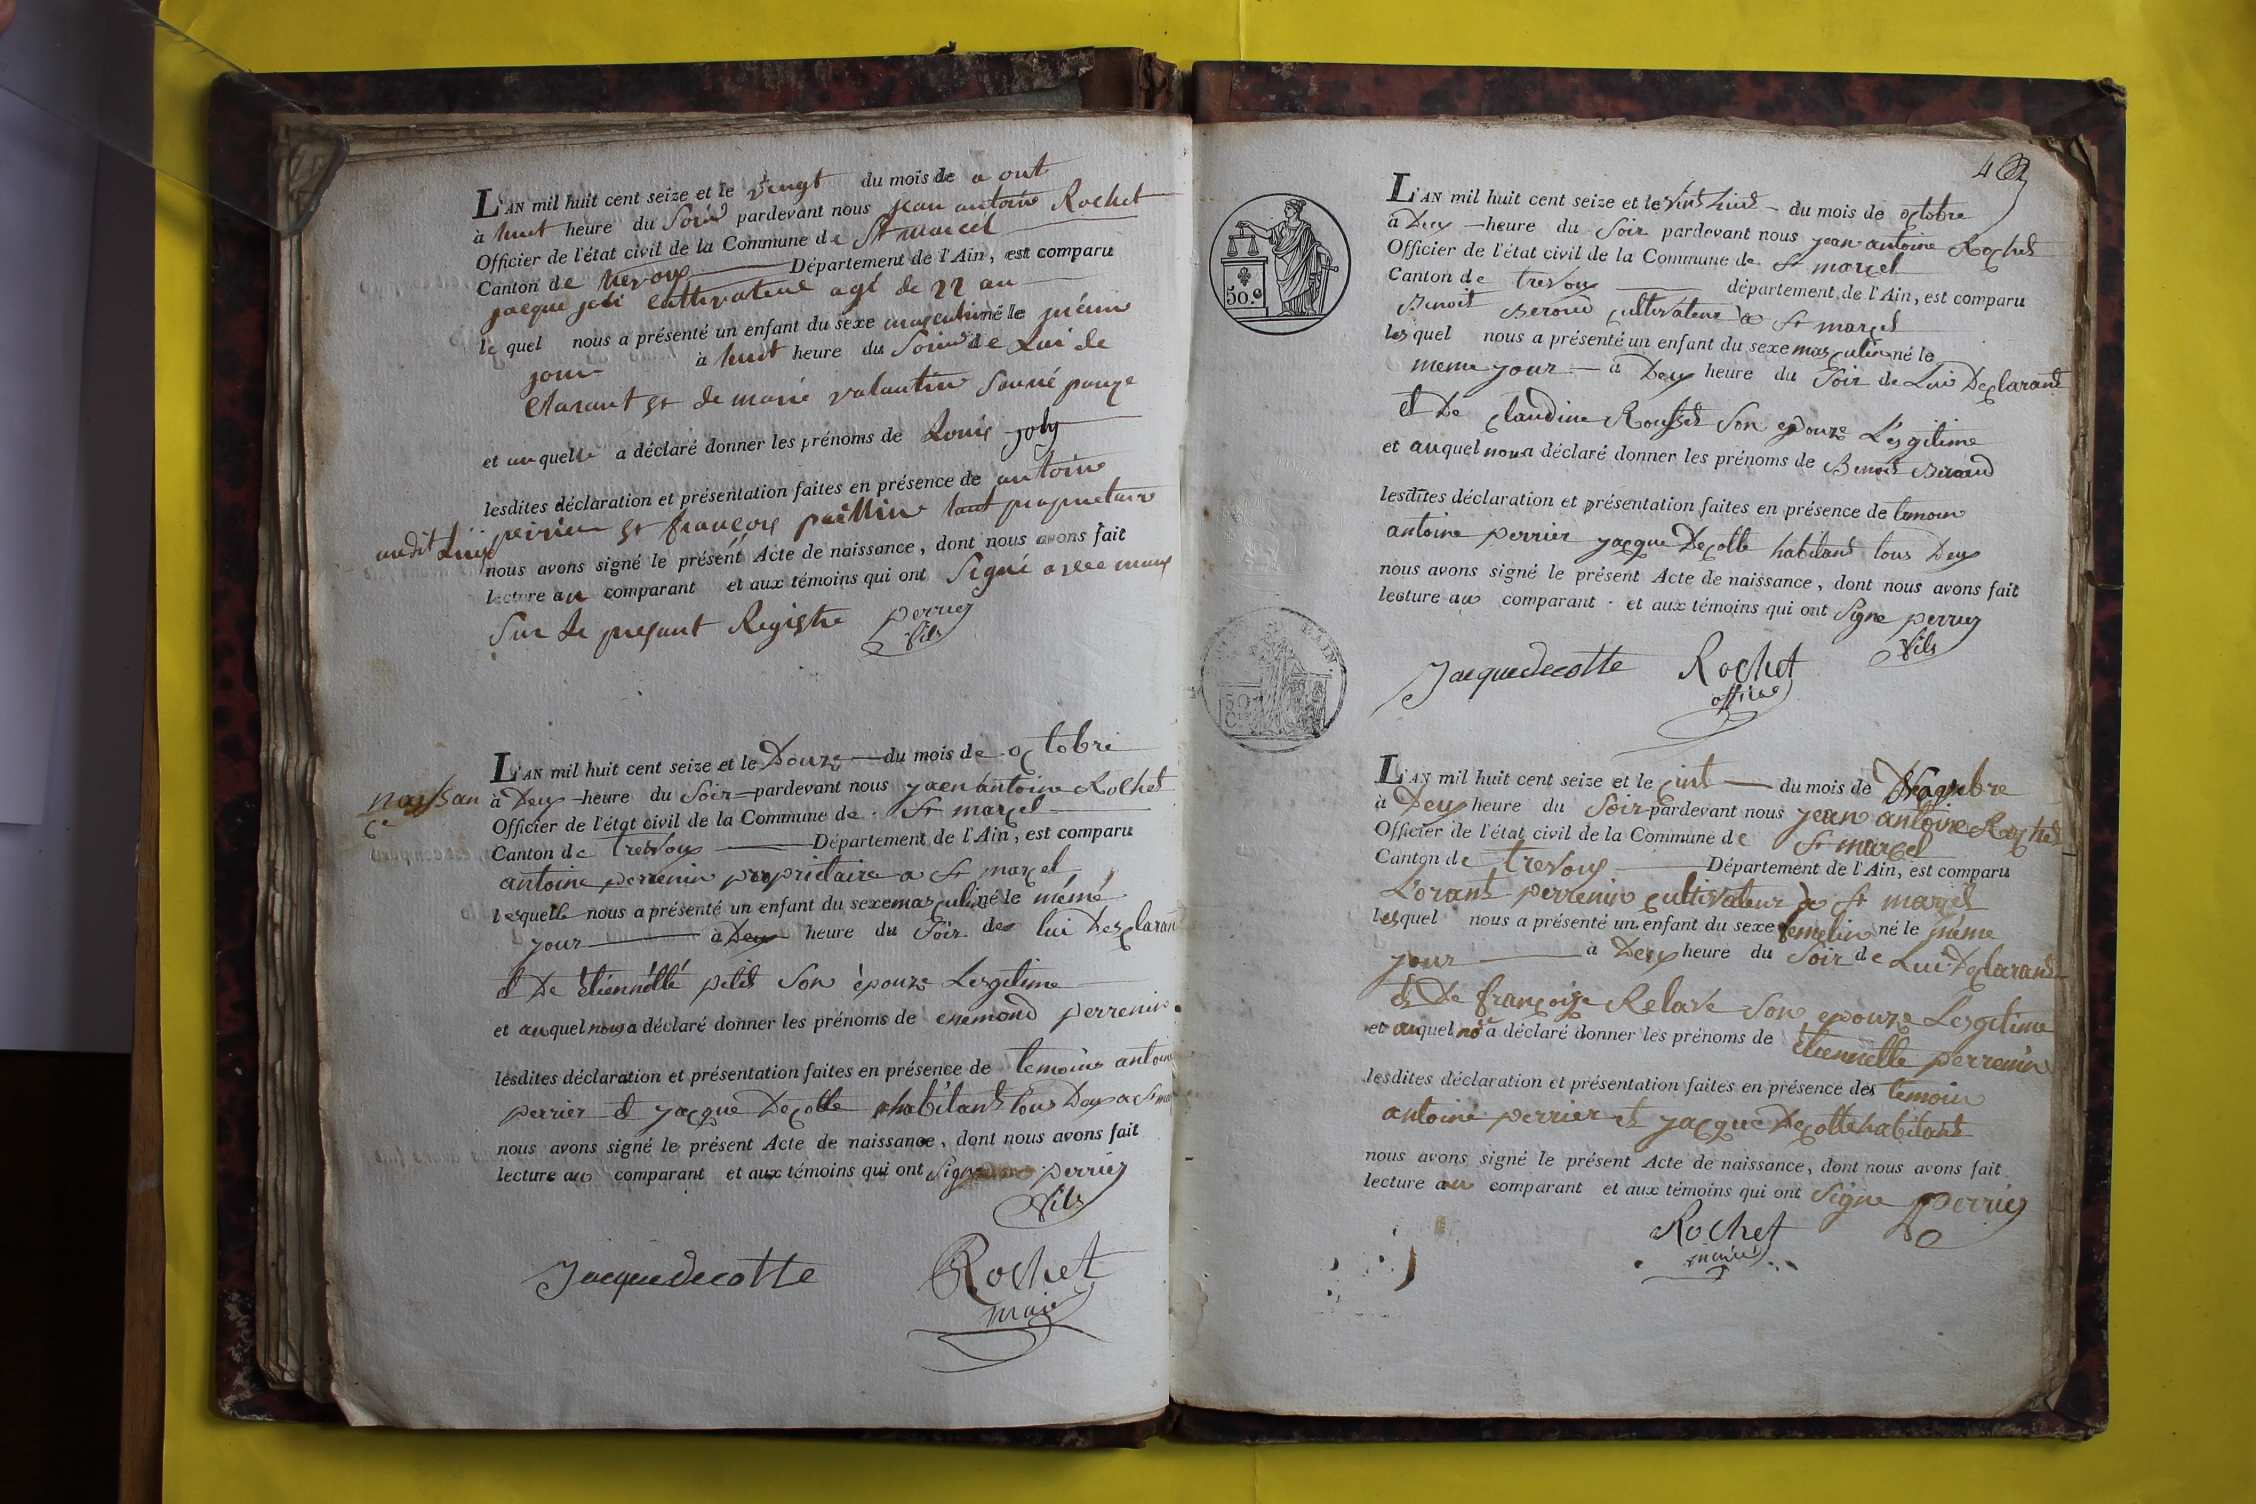 L'AN mil huit cent seize et le vingt du mois de a out
à huit heure du Soir pardevant nous jean antoine Rochet
Officier de l'état civil de la Commune de St marcel
Canton de trevoux Département de l'Ain, est comparu
jacque joli cultivateur agé de 22 an
le quel nous a présenté un enfant du sexe masculin né le
jour à huit heure du Soir de Lui de
clarant et de marie valantin
et au quelle a déclaré donner les prénoms de Louis joly
lesdites déclaration et présentation faites en présence de antoine
perrier et françois tout propriétaire
audit Lieu
nous avons signé le présent Acte de naissance, dont nous avons fait
lecture au comparant et aux témoins qui ont Signé avec
Sur Le presant Registre perrier
fils
naissan
ce
L'AN mil huit cent seize et le Douze du mois de octobre
à Deux heure du Soir pardevant nous jaen antoine Rochet
Officier de l'état civil de la Commune de St marcel
Canton de trevoux Département de l'Ain, est comparu
antoine perrenin propriétaire a St marcel
lesquelle nous a présenté un enfant du sexe masculin né le mémé
jour à Deux heure du Soir de lui Desclarant
et De étiénnétté petit Son épouze Lesgitime
et auquel nous a déclaré donner les prénoms de enemond perrenin
lesdites déclaration et présentation faites en présence de temoins antoine
perrier et jacque Decotte habitant tous Deux a St
nous avons signé le présent Acte de naissance, dont nous avons fait
lecture au comparant et aux témoins qui ont perrier
fils
Jacquedecotte Rochet
maire
4
50.c
L'AN mil huit cent seize et le vint huit du mois de octobre
à Deux heure du Soir pardevant nous jean antoine Rochet
Officier de l'état civil de la Commune de St marcel
Canton de trevoux département de l'Ain, est comparu
Benoit Beroud cultivateur a St marcel
lesquel nous a présenté un enfant du sexe masculin né le
meme jour à Deux heure du Soir de Lui Declarant
et De claudine Rousset Son epouze Lesgitime
et auquel nous a déclaré donner les prénoms de Benoit Beroud
lesdites déclaration et présentation faites en présence de temoin
antoine perrier jacque Decotte habitant tous Deux
nous avons signé le présent Acte de naissance, dont nous avons fait
lecture au comparant et aux témoins qui ont Signe perrier
fils
Jacquedecotte Rochet
officier
L'AN mil huit cent seize et le cint du mois de
à Deux heure du Soir pardevant nous jean antoine Rochet
Officier de l'état civil de la Commune de St marcel
Canton de trevoux Département de l'Ain, est comparu
Lorant perrenin cultivateur a St marcel
lesquel nous a présenté un enfant du sexe femelin né le méme
jour à Deux heure du Soir de Lui Declarant
et De françoise Relave Son epouze Lesgitime
et auquel a déclaré donner les prénoms de étiennette perrenin
lesdites déclaration et présentation faites en présence des temoin
antoine perrier et jacque Decotte habitant
nous avons signé le présent Acte de naissance, dont nous avons fait
lecture au comparant et aux témoins qui ont Signe perrier
Rochet
maire